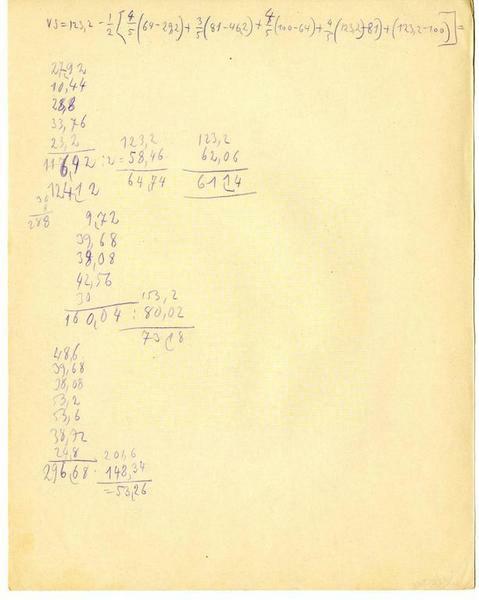 VS = 123,2 - 1/2 [ 4/5 (64-29,2) + 3/5 (81-46,2) + 4/5 (100-64) + 4/5 (123,2-81) + (123,2-100) ] =
27,92
10,44
28,8
33,76
23,2 123,2 123,2
116,92 : 2 = 58,46 62,06
124,12 64,74 61,14
36
8
288
9,72
39,68
38,08
42,56
30 153,2
160,04 : 80,02
73,18
48,6
39,68
38,08
53,2
53,6
38,72
24,8 201,6
296,68 · 148,34
= 53,26